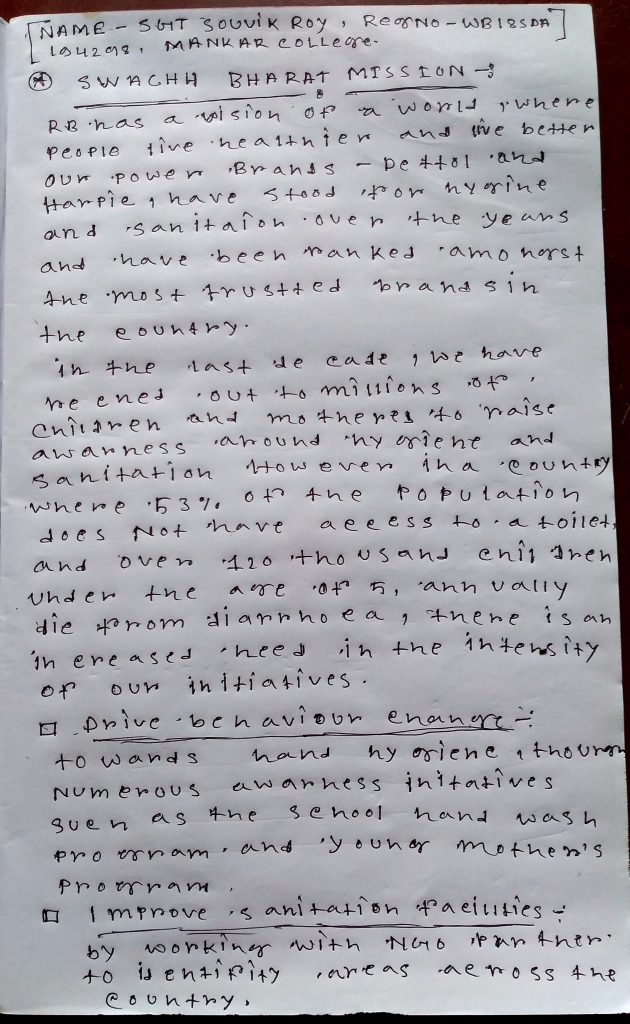 [NAME - SGT SOUVIK ROY, Reg NO - WB18SDA
194298, MANKAR COLLEGE.]
* SWACHH BHARAT MISSION -:
RB has a vision of a world, where
people live healthier and live better
our power Brands - Dettol and
Harpie, have stood for hygine
and sanitaion over the years
and have been ranked amongst
the most trustted brands in
the country.
in the last decade, we have
reened out to millions of
children and motheres to raise
awarness around hygiene and
sanitation However in a country
where 53% of the population
does Not have access to a toilet,
and over 120 thousand children
under the age of 5, annually
die from diarrhoea, there is an
increased need in the intensity
of our initiatives.
□ Drive behaviour change -:
towards hand hygiene, thourgh
Numerous awarness initatives
such as the school hand wash
program and young mother's
program.
□ Improve sanitation facilities -:
by working with NGO parther
to identifity areas across the
country.